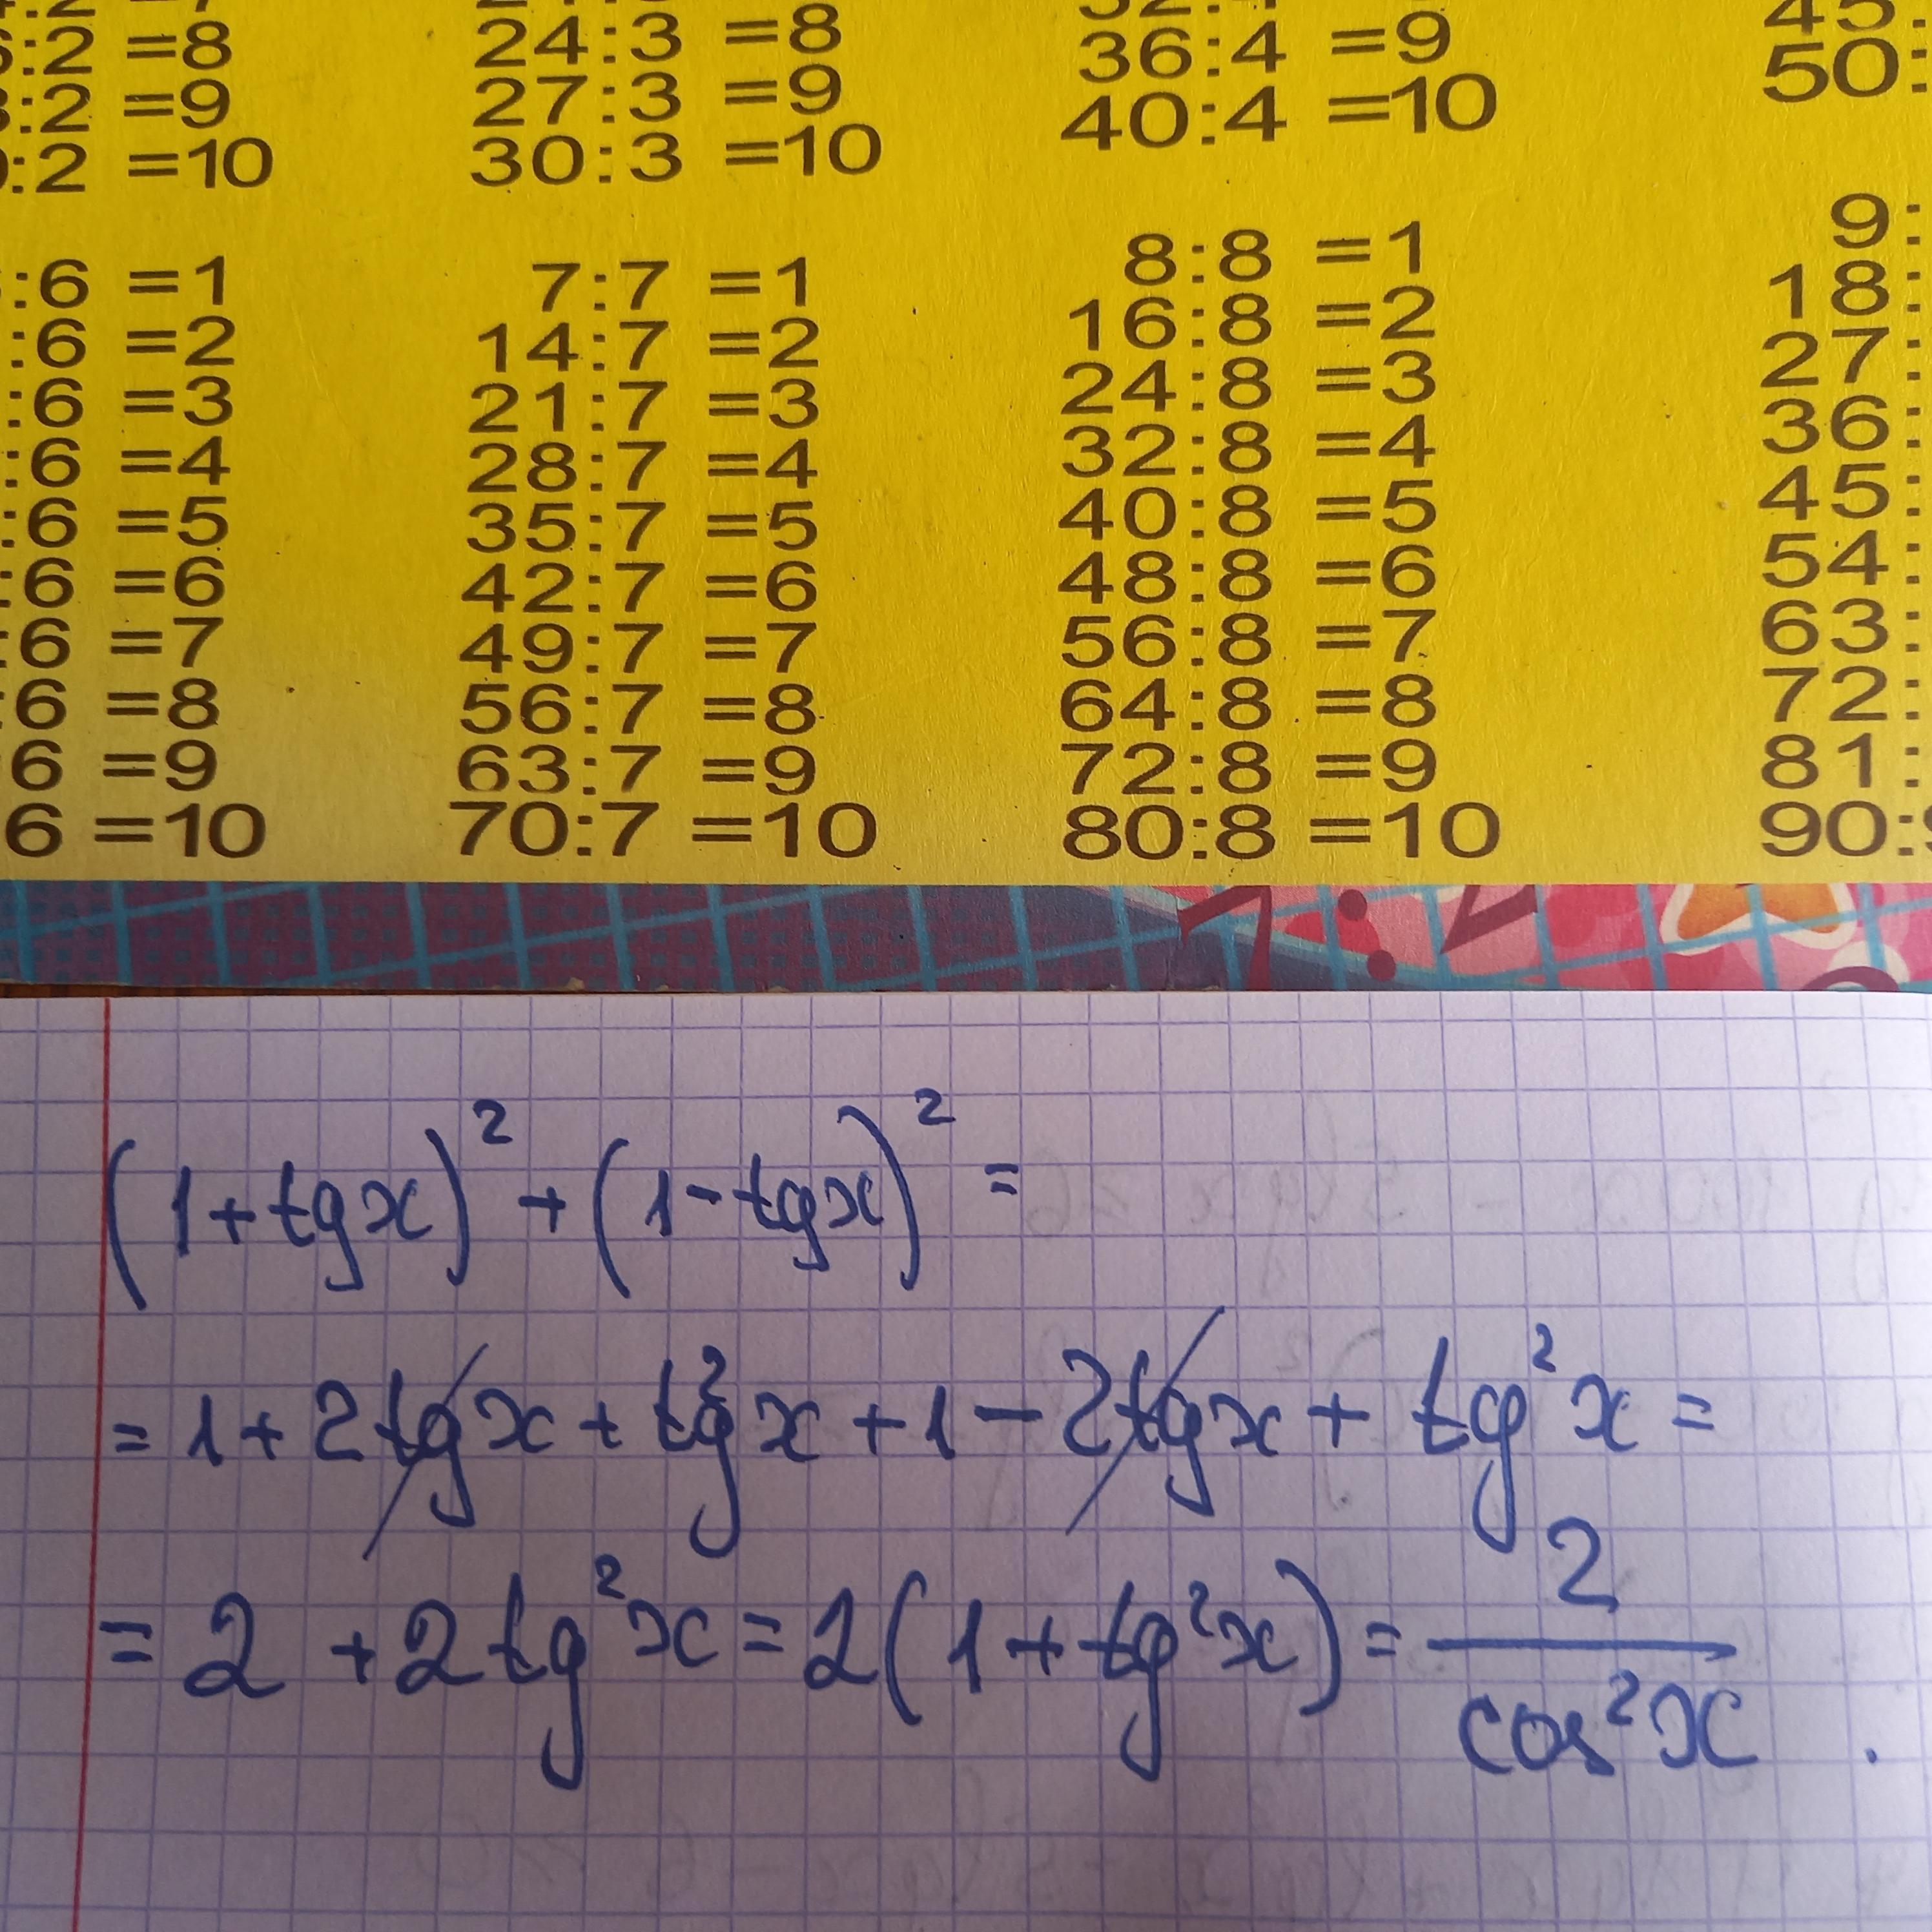 :2 =8
:2 =9
:2 =10
24:3 =8
27:3 =9
30:3 =10
36:4 =9
40:4 =10
45:
50:
:6 =1
:6 =2
:6 =3
:6 =4
:6 =5
:6 =6
:6 =7
:6 =8
6 =9
6 =10
7:7 =1
14:7 =2
21:7 =3
28:7 =4
35:7 =5
42:7 =6
49:7 =7
56:7 =8
63:7 =9
70:7 =10
8:8 =1
16:8 =2
24:8 =3
32:8 =4
40:8 =5
48:8 =6
56:8 =7
64:8 =8
72:8 =9
80:8 =10
9:
18:
27:
36:
45:
54:
63:
72:
81:
90:
(1+tgx)² + (1-tgx)² =
= 1 + 2tgx + tg²x + 1 - 2tgx + tg²x =
= 2 + 2tg²x = 2(1 + tg²x) = 2/cos²x.